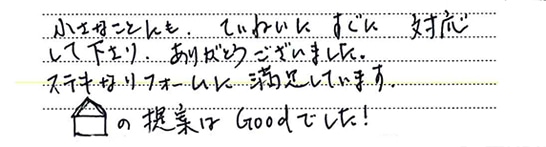 小さなことにも、ていねいにすぐに 対応
して下さり、ありがとうございました。
ステキなリフォームに満足しています。
の提案はGoodでした!